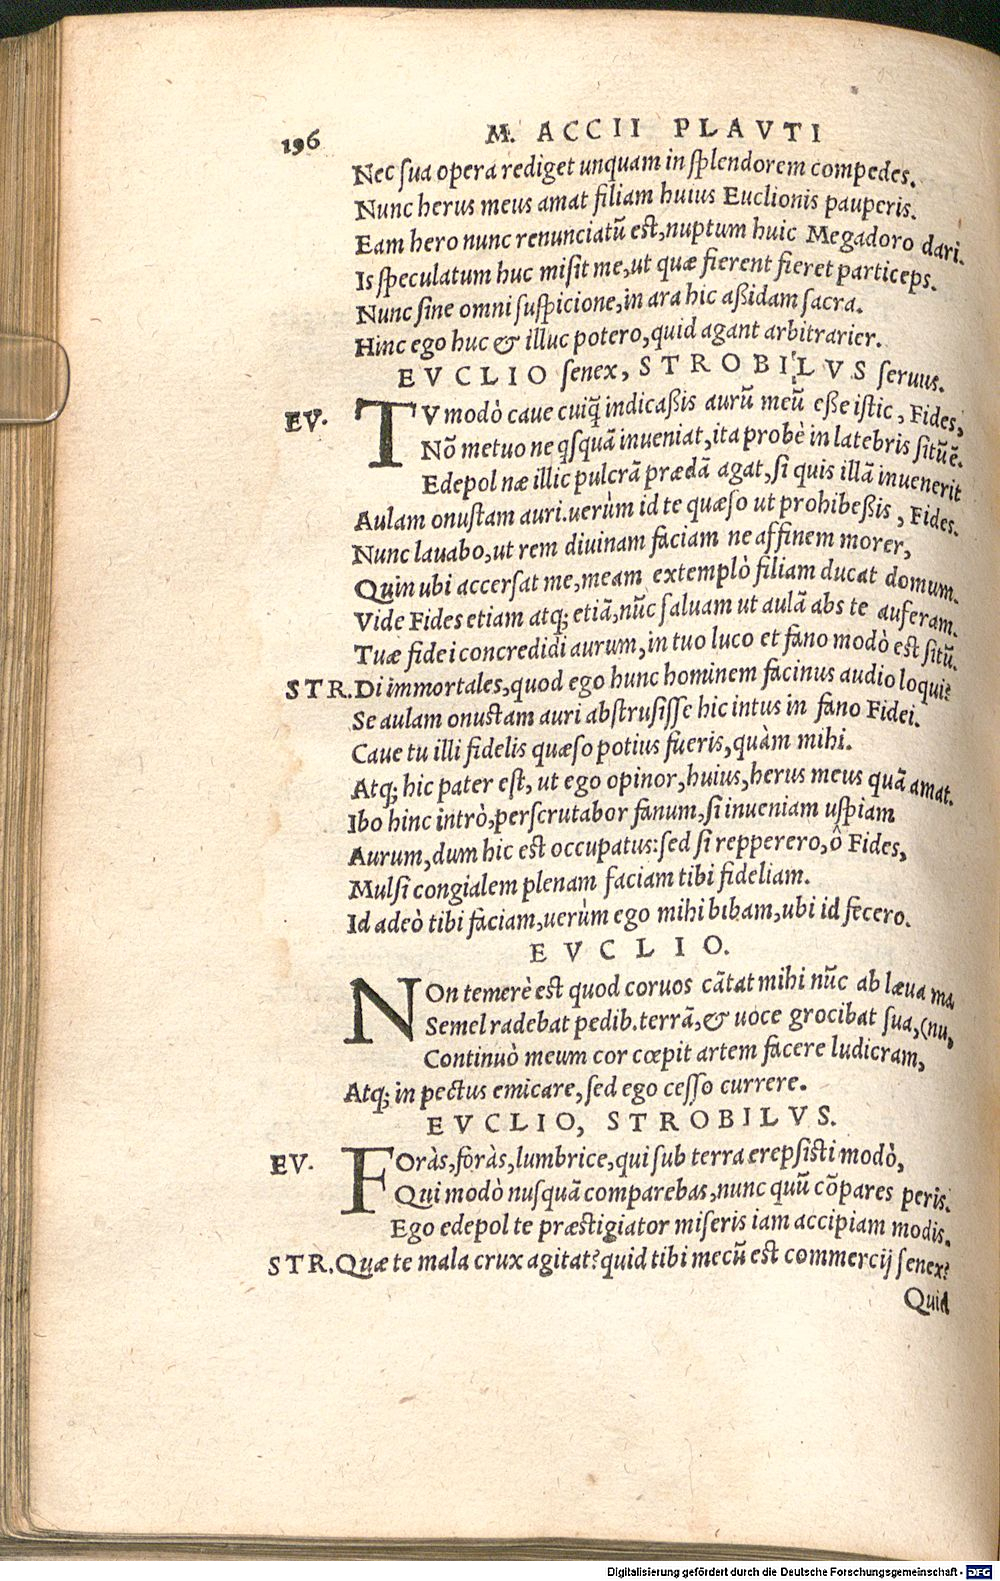 196 M. ACCII PLAVTI
Nec sua opera rediget unquam in splendorem compedes.
Nunc herus meus amat filiam huius Euclionis pauperis.
Eam hero nunc renunciatũ est, nuptum huic Megadoro dari.
Is speculatum huc misit me, ut quæ fierent fieret particeps.
Nunc sine omni suspicione, in ara hic aßidam sacra.
Hinc ego huc & illuc potero, quid agant arbitrarier.
EVCLIO senex, STROBILVS seruus.
EV. TV modò caue cuiq̃ indicaßis aurũ meũ eße istic, Fides,
Nõ metuo ne qsquã inueniat, ita probè in latebris sitũ ẽ.
Edepol næ illic pulcrã prædã agat, si quis illã inuenerit
Aulam onustam auri. uerùm id te quæso ut prohibeßis, Fides.
Nunc lauabo, ut rem diuinam faciam ne affinem morer,
Quin ubi accersat me, meam extemplò filiam ducat domum.
Vide Fides etiam atq; etiã, nũc saluam ut aulã abs te auferam.
Tuæ fidei concredidi aurum, in tuo luco et fano modò est sitũ.
STR. Di immortales, quod ego hunc hominem facinus audio loqui?
Se aulam onustam auri abstrusisse hic intus in fano Fidei.
Caue tu illi fidelis quæso potius fueris, quàm mihi.
Atq; hic pater est, ut ego opinor, huius, herus meus quã amat.
Ibo hinc intrò, perscrutabor fanum, si inueniam uspiam
Aurum, dum hic est occupatus: sed si repperero, ô Fides,
Mulsi congialem plenam faciam tibi fideliam.
Id adeò tibi faciam, uerùm ego mihi bibam, ubi id fecero.
EVCLIO.
NOn temerè est quod coruos cãtat mihi nũc ab læua ma
Semel radebat pedib. terrã, & uoce grocibat sua, (nu,
Continuò meum cor cœpit artem facere ludicram,
Atq; in pectus emicare, sed ego cesso currere.
EVCLIO, STROBILVS.
EV. FOràs, foràs, lumbrice, qui sub terra erepsisti modò,
Qui modò nusquã comparebas, nunc quũ cõpares peris.
Ego edepol te præstigiator miseris iam accipiam modis.
STR. Quæ te mala crux agitat? quid tibi mecũ est commercij senex?
Quid
Digitalisierung gefördert durch die Deutsche Forschungsgemeinschaft - DFG